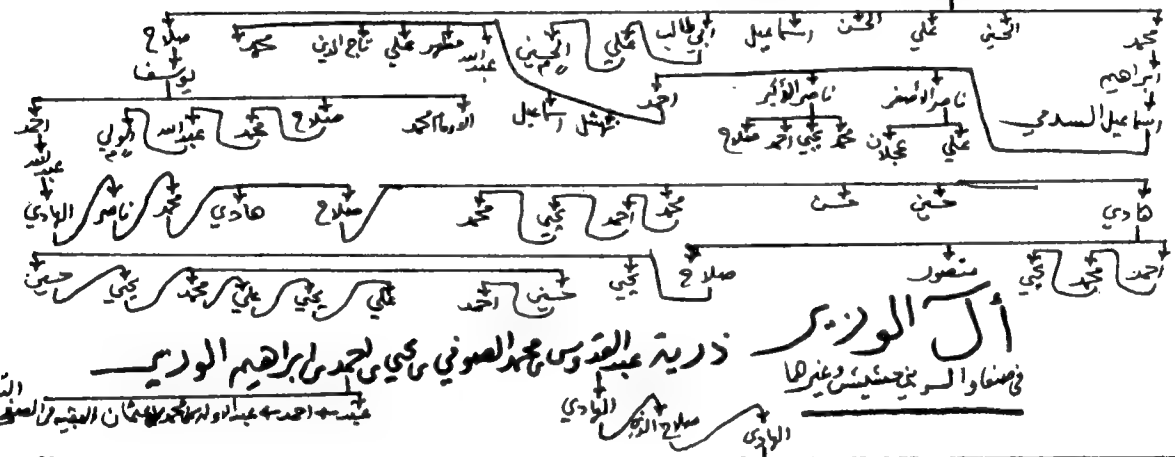 محمد الحسين علي الحسن اسماعيل ابي طالب علي الحسين عبدالله مطهر علي تاج الدين محمد صلاح
ابراهيم يوسف
اسماعيل السدمي ناصر الأصغر ناصر الأكبر احمد نهشل اسماعيل الامام محمد صلاح محمد عبدالله احمد
علي عجلان محمد يحيى احمد صلاح عبدالله
هادي حسين حسن محمد احمد يحيى محمد صلاح هادي محمد ناصر الهادي
احمد محمد يحيى منصور صلاح يحيى حسين احمد علي يحيى علي محمد يحيى حسين
أل الوزير
في صنعاء والسر وبني حشيش وغيرها
ذرية عبدالقدوس بن محمد الصوفي بن يحيى بن احمد بن ابراهيم الوزير
الهادي صلاح الدين الهادي
احمد عثمان الفقيه